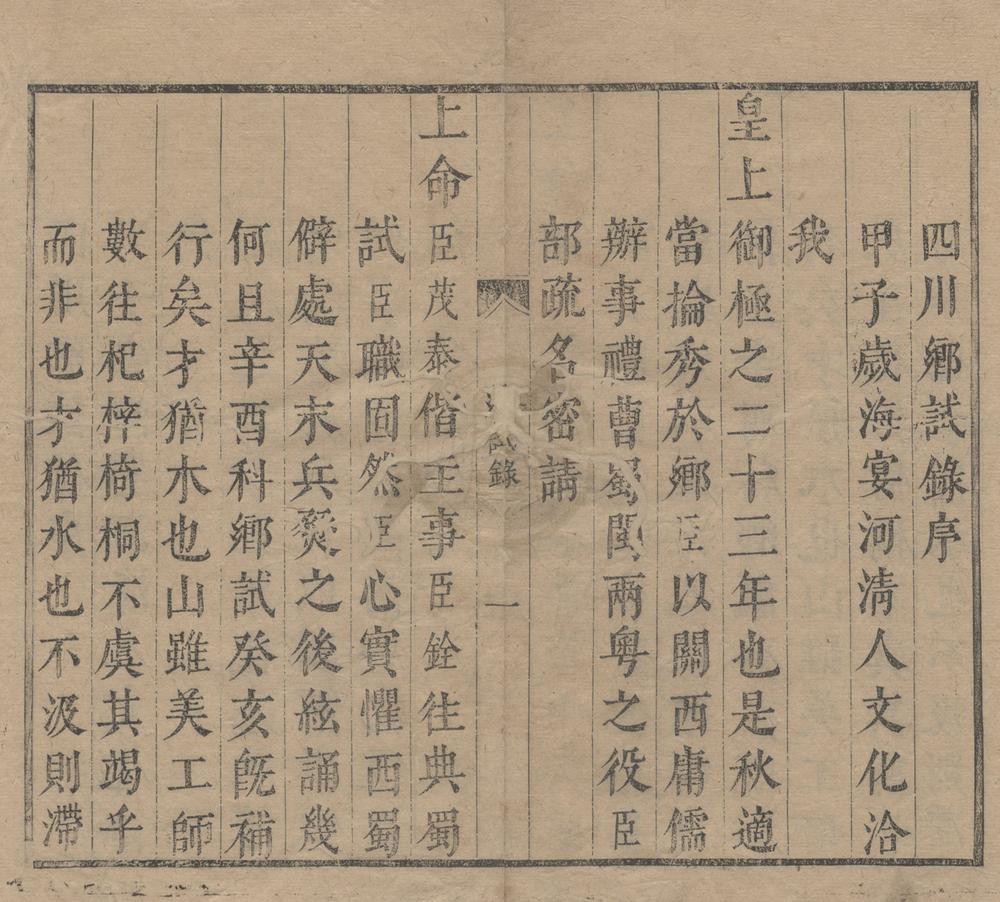 四川鄉試錄序
甲子歲海宴河清人文化洽
我
皇上御極之二十三年也是秋適
當掄秀於鄉臣以關西庸儒
辦事禮曹蜀閩兩粤之役臣
部疏名密請
試錄 一
上命臣茂泰偕主事臣銓往典蜀
試臣職固然臣心實懼西蜀
僻處天末兵燹之後絃誦幾
何且辛酉科鄉試癸亥旣補
行矣才猶木也山雖美工師
數往杞梓椅桐不虞其竭乎
而非也才猶水也不汲則滯